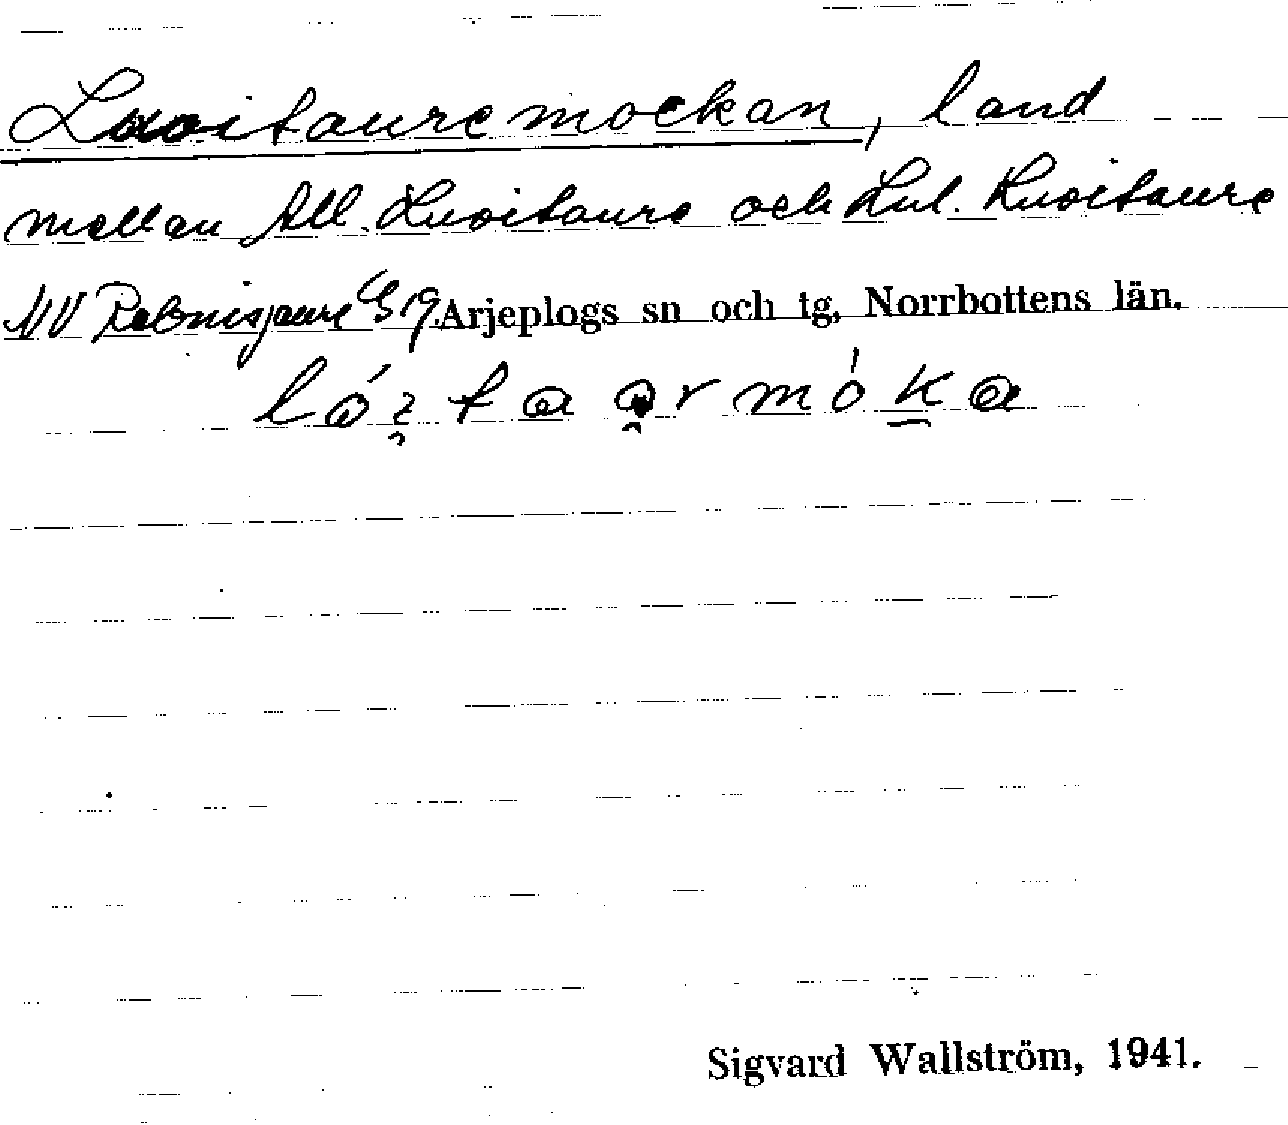 Luoitauremockan, land
mellan All. Luoitaure och Lul. Luoitaure
NV Rebnisjaure G 19. Arjeplogs sn och tg, Norrbottens län.
Sigvard Wallström, 1941.